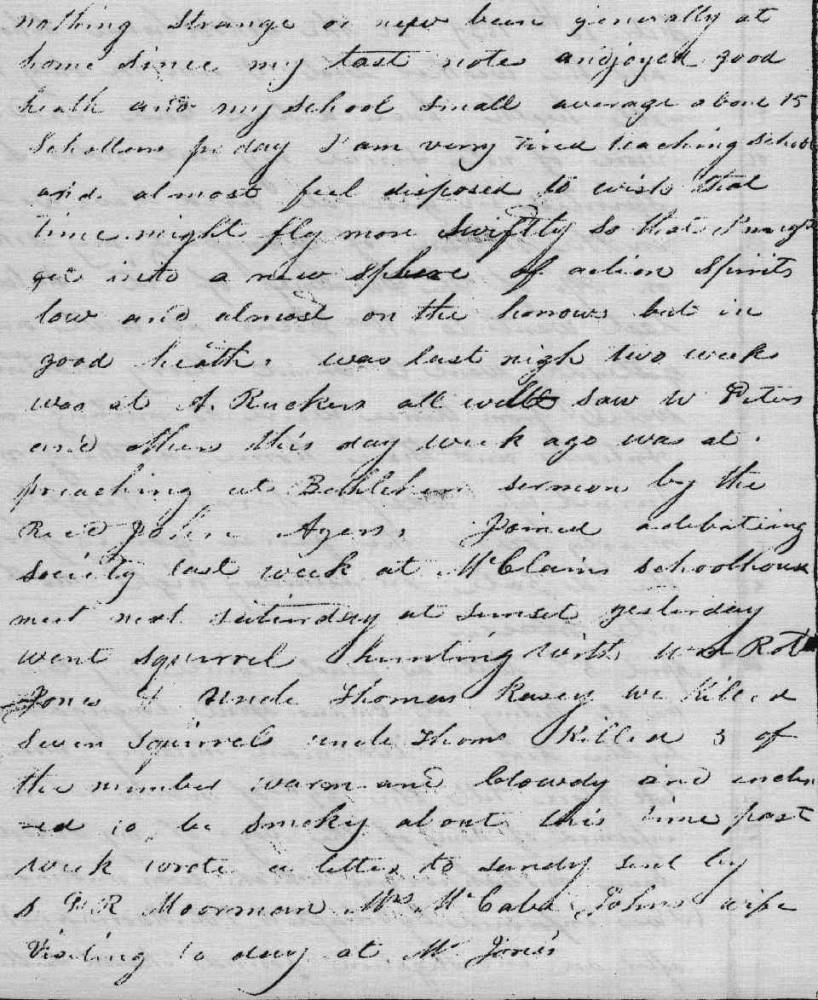 nothing strange or new been generally at
home since my last note andjoyed good
heath and my school small average about 15
Schollors pr day I am verry tired teaching school
and almost feel disposed to wish that
time might fly more swiftly so that I might
get into a new sphere of action Spirits
low and almost on the horrows but in
good heath. was last nigh two week
was at A. Ruckers all well saw W Peters
and this day week ago was at
preaching at Bethlehem sermon by the
Revd John Ayers. Joined adebating
society last week at McClains schoolhouse
meet next saturday at sunset yesterday
went squirrel hunting with Rot
Jones & Uncle Thomas Kasey we killed
seven squirrels uncle Thoms Killed 3 of
the number warm and clowdy and inclin
ed to be smoky about this time past
week wrote a letter to sandy sent by
S Moorman Mrs McCabe Johns wife
Visiting to day at Mr Jones